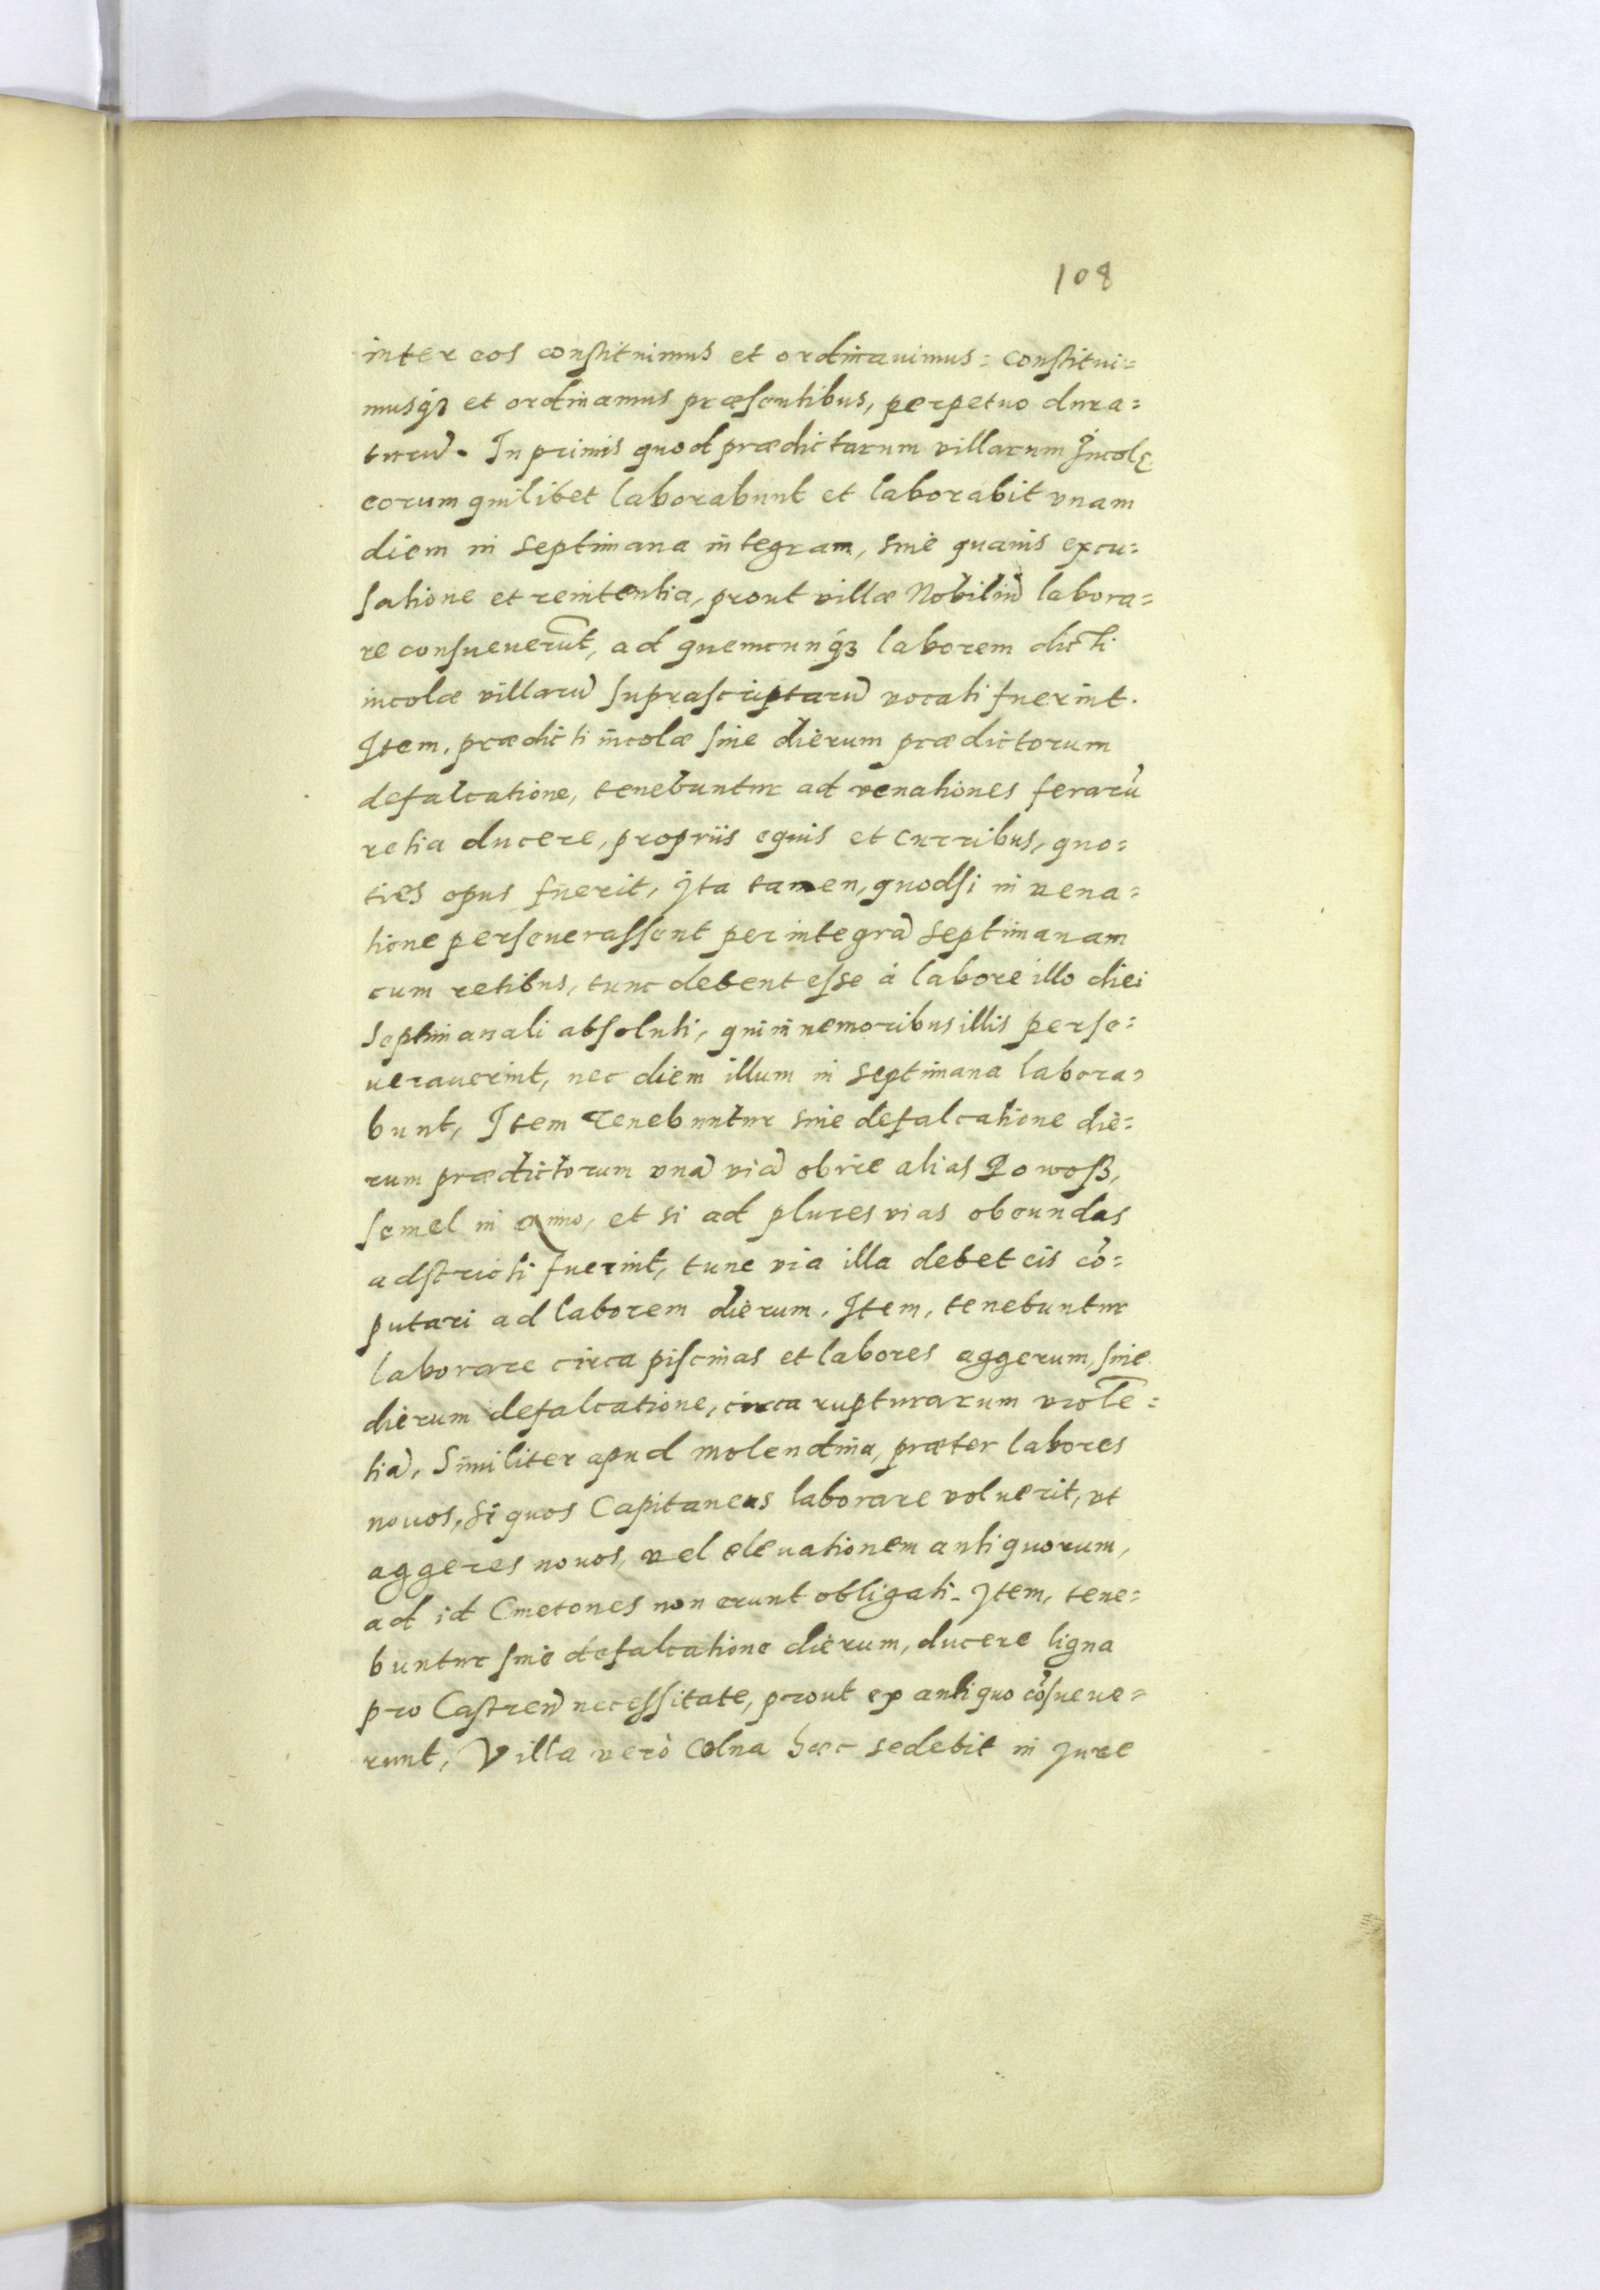 108
inter eos constituimus et ordinauimus: constitui=
musq₃ et ordinamus præsentibus, perpetuo dura=
turũ. In primis quod prædictarum villarum Incolę
eorum quilibet laborabunt et laborabit vnam
diem in septimana integram, sine quauis excu=
satione et renitentia, prout villæ Nobiliũ labora=
re consueuerũt, ad quemcunq₃ laborem dicti
incolæ villarũ suprascriptarũ vocati fuerint.
Item, prædicti incolæ sine dierum prædictorum
defalcatione, tenebuntur ad venationes ferarũ
retia ducere, propriis equis et curribus, quo=
ties opus fuerit, Ita tamen, quodsi in vena=
tione perseuerassent per integrã septimanam
cum retibus, tunc debent esse à labore illo diei
septimanali absoluti, qui in nemoribus illis perse=
uerauerint, nec diem illum in septimana labora=
bunt, Item Tenebuntur sine defalcatione die=
rum prædictorum vnã viã obire alias Powosz,
semel in anno, et si ad plures vias obeundas
adstricti fuerint, tunc via illa debet eis cõ=
putari ad laborem dierum. Item, tenebuntur
laborare circa piscinas et labores aggerum, sine
dierum defalcatione, circa rupturarum violẽ=
tiã, Similiter apud molendina, præter labores
nouos, si quos Capitaneus laborare voluerit, vt
aggeres nouos, vel eleuationem antiquorum,
ad id Cmetones non erunt obligati. Item, tene=
buntur sine defalcatione dierum, ducere ligna
pro Castreñ necessitate, prout ex antiquo cõsueue=
runt, Villa verò Colna hæc sedebit in Jure